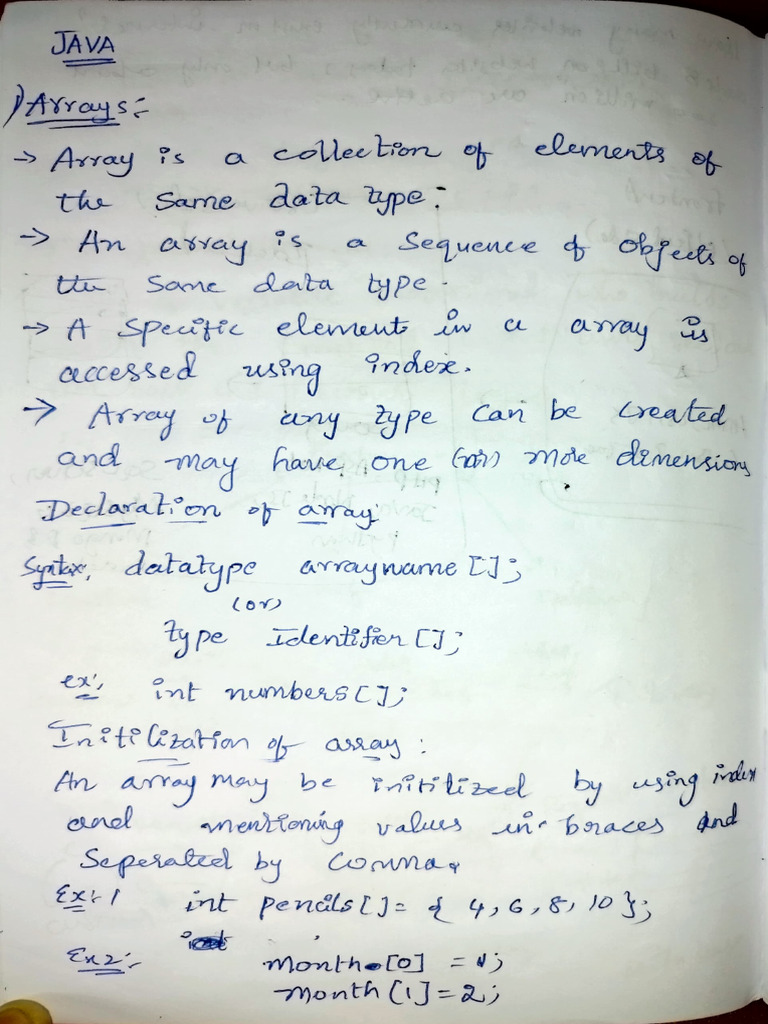 JAVA
1) Arrays:-
→ Array is a collection of elements of
the same data type.
→ An array is a sequence of objects of
the same data type.
→ A specific element in a array is
accessed using index.
→ Array of any type can be created
and may have one (or) more dimensions
Declaration of array:
Syntax: datatype arrayname [];
(or)
type Identifier [];
ex: int numbers [];
Initilization of array:
An array may be initilized by using index
and mentioning values in braces and
Seperated by comma.
Ex:1 int pencils [] = { 4, 6, 8, 10 };
Ex2:- month [0] = 1;
month [1] = 2;